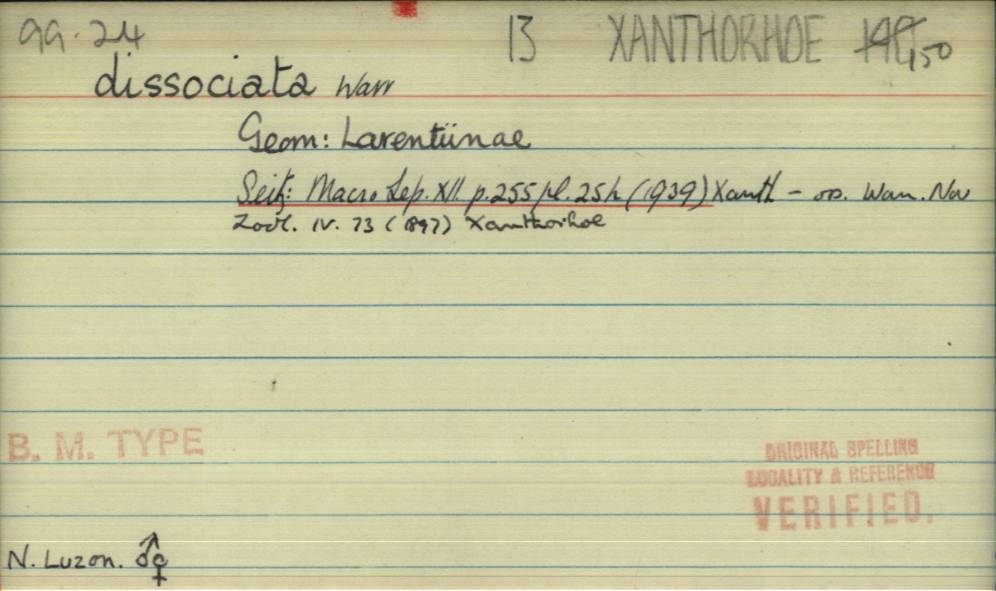 99.24 13 XANTHORHOE 150
dissociata Warr
Geom: Larentiinae
Seitz: Macro Lep. XII. p. 255 pl. 25h (1939) Xanth - op. Warr. Nov
Zool. IV. 73 (1897) Xanthorhoe
B. M. TYPE
ORIGINAL SPELLING
LOCALITY & REFERENCE
VERIFIED.
N. Luzon. ♂♀